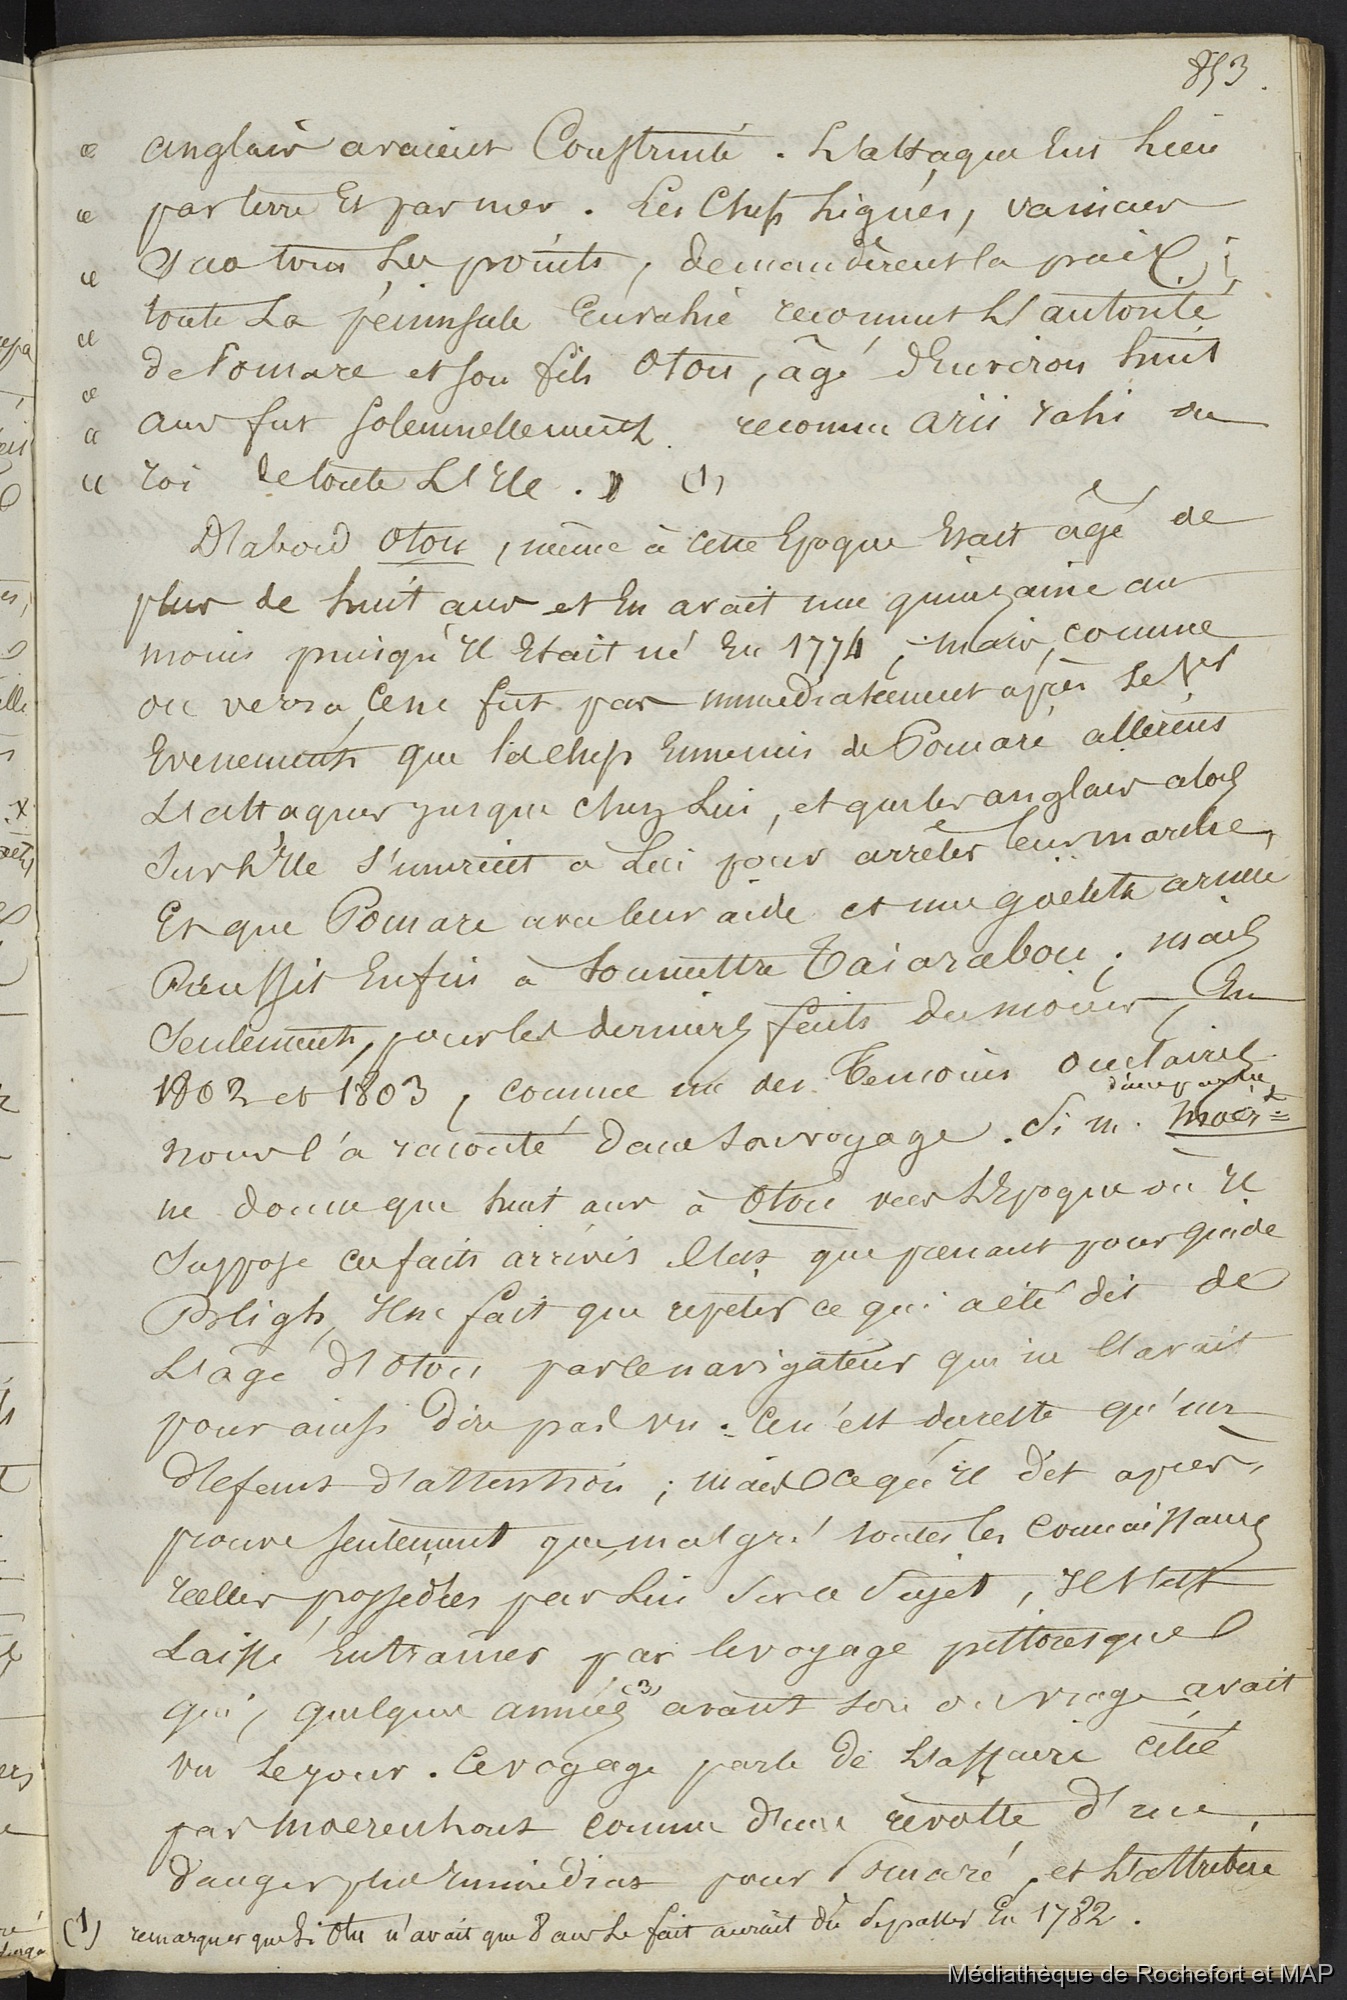 853.
« anglais avaient Construite. L'attaque Eut Lieu
« par terre Et par mer. Les Chefs Ligués, vaincus
« sur tous Les points, demandèrent la paix ;
« toute La péninsule Envahie reconnut L'autorité
« de Pomare et son fils Otou, âgé d'Environ huit
« ans fut solennellement reconnu arii rahi ou
« roi de toute L'Ile. » (1)
D'abord Otou, même à cette Epoque Etait âgé de
plus de huit ans et En avait une quinzaine au
moins puisqu'Il Etait né En 1774 ; mais, comme
on verra, Ce ne fut pas immédiatement après le 1er
Evenements que les chefs Ennemis de Pomaré allèrent
L'attaquer jusque chez Lui, et que les anglais alors
sur L'Ile s'unirent a Lui pour arrêter leur marche,
Et que Pomare avec leur aide et une goëlette armée
Réussit Enfin à Soumettre Taiarabou ; mais
Seulement, pour les derniers faits du moins, En
1802 et 1803, comme un des Temoins oculaires
nous l'a raconté dans son voyage. Si m. Moert
d'une part
ne donne que huit ans à Otou vers L'Epoque où Il
Suppose ces faits arrivés c'est que prenant pour guide
Bligh, Il ne fait que repeter ce qui a été dit de
L'âge d'Otou par le navigateur qui ne L'avait
pour ainsi dire pas vu. Ce n'est du reste qu'un
défaut d'attention ; mais ce qu'Il dit après,
prouve seulement que, malgré toutes les connaissances
réelles possédées par Lui sur ce sujet, Il s'est
Laissé Entraîner par le voyage pittoresque
qui, quelques années (3) avant son ouvrage avait
vu Le jour. Ce voyage parle de L'affaire citée
par Moerenhout comme d'une révolte d'un
danger plus Immédiat pour Pomaré, et L'attribue
(1) remarquer que Si Otu n'avait que 8 ans Le fait aurait dû Se passer En 1782.
Médiathèque de Rochefort et MAP